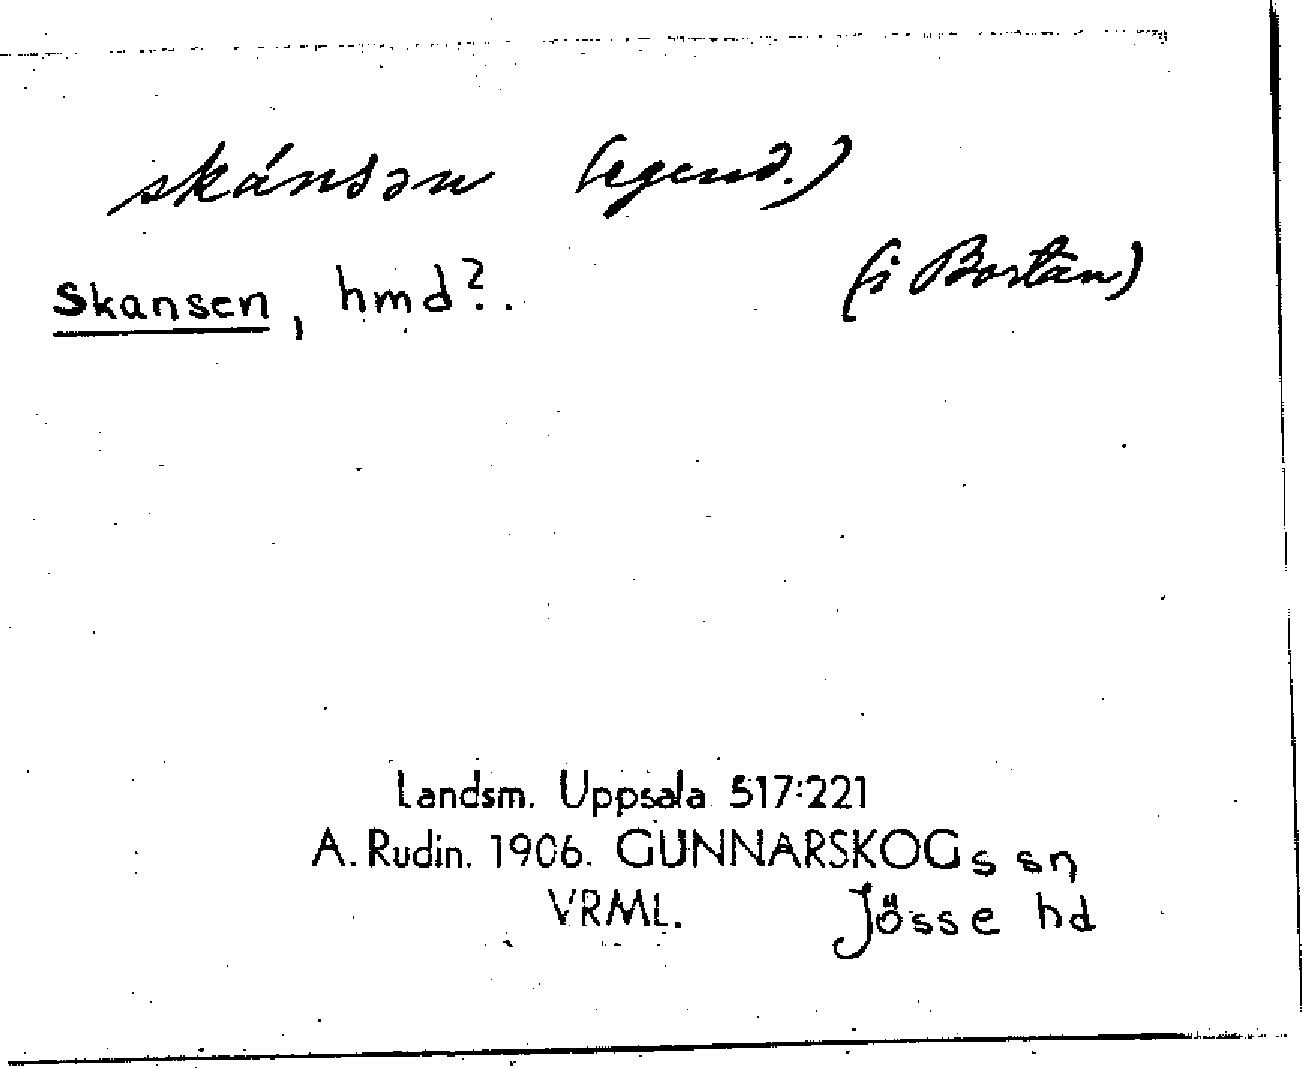 skánsən (egend.)
(i Bortan)
Skansen, hmd?.
Landsm. Uppsala 517:221
A. Rudin. 1906. GUNNARSKOGs sn
VRML. Jösse hd